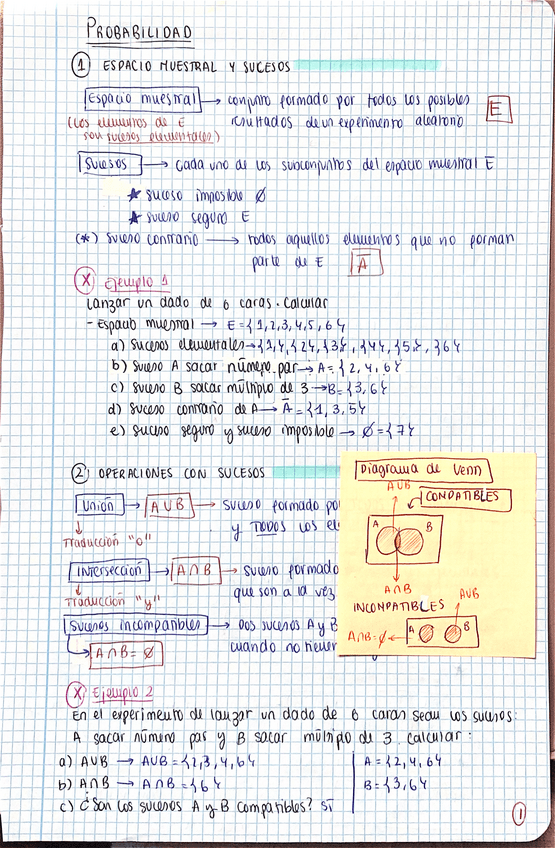 PROBABILIDAD
1 ESPACIO MUESTRAL Y SUCESOS
Espacio muestral → conjunto formado por todos los posibles
resultados de un experimento aleatorio
E
(Los elementos de E
son sucesos elementales)
Sucesos → Cada uno de los subconjuntos del espacio muestral E
★ suceso imposible Ø
★ suceso seguro E
(*) Suceso contrario → todos aquellos elementos que no forman
parte de E
A̅
X Ejemplo 1
Lanzar un dado de 6 caras. Calcular
- Espacio muestral → E={1,2,3,4,5,6}
a) Sucesos elementales→{1},{2},{3},{4},{5},{6}
b) Suceso A sacar número par→ A={2,4,6}
c) Suceso B sacar múltiplo de 3→B={3,6}
d) Suceso contrario de A→ A̅={1,3,5}
e) Suceso seguro y suceso imposible → Ø={7}
2 OPERACIONES CON SUCESOS
Unión → AUB → suceso formado po
y TODOS los el
Traducción "o"
Intersección → A∩B → suceso formado
que son a la vez
Traducción "y"
Sucesos incompatibles → Dos sucesos A y B
cuando no tiene
A∩B=Ø
Diagrama de Venn
AUB
COMPATIBLES
A B
A∩B
INCOMPATIBLES
AUB
A∩B=Ø
A B
X Ejemplo 2
En el experimento de lanzar un dado de 6 caras sean los sucesos:
A sacar número par y B sacar múltiplo de 3. calcular:
a) AUB → AUB={2,3,4,6}
b) A∩B → A∩B={6}
c) ¿Son los sucesos A y B compatibles? sí
A={2,4,6}
B={3,6}
1